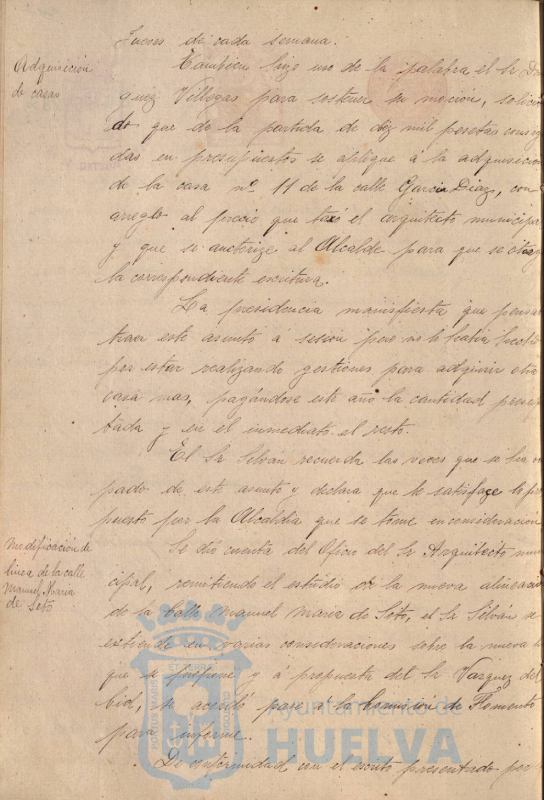 Jueves de cada semana.
Adquisición
de casas
También hizo uso de la palabra el Sr
quez Villegas para sostener su moción, solici
do que de la partida de diez mil pesetas consig
das en presupuestos se obligue á la adquisicion
de la casa nº 11 de la calle Garcia Diaz, con
arreglo al precio que tasó el arquitecto municipa
y que se autorize al Alcalde para que se otorg
la correspondiente escritura.
La presidencia manifiesta que pensa
traer este asunto á sesion pero no lo habia hecho
por estar realizando gestiones para adquirir otra
casa mas, pagándose este año la cantidad presup
tada y en el inmediato el resto.
El Sr Silván recuerda las veces que se ha
pado de este asunto y declara que le satisface lo pro
puesto por la Alcaldia que se tome en consideración
Modificación de
linea de la calle
Manuel Maria
de Soto
Se dió cuenta del Oficio del Sr Arquitecto muni
cipal, remitiendo el estudio de la nueva alineacio
de la Calle Manuel Maria de Soto, el Sr Silván se
extiende en varias consideraciones sobre la nueva
que se propone y á propuesta del Sr Vazquez del
bió, se acordó pase á la Comision de Fomento
para informe.
De conformidad con el escrito presentado por
Ayuntamiento de
HUELVA